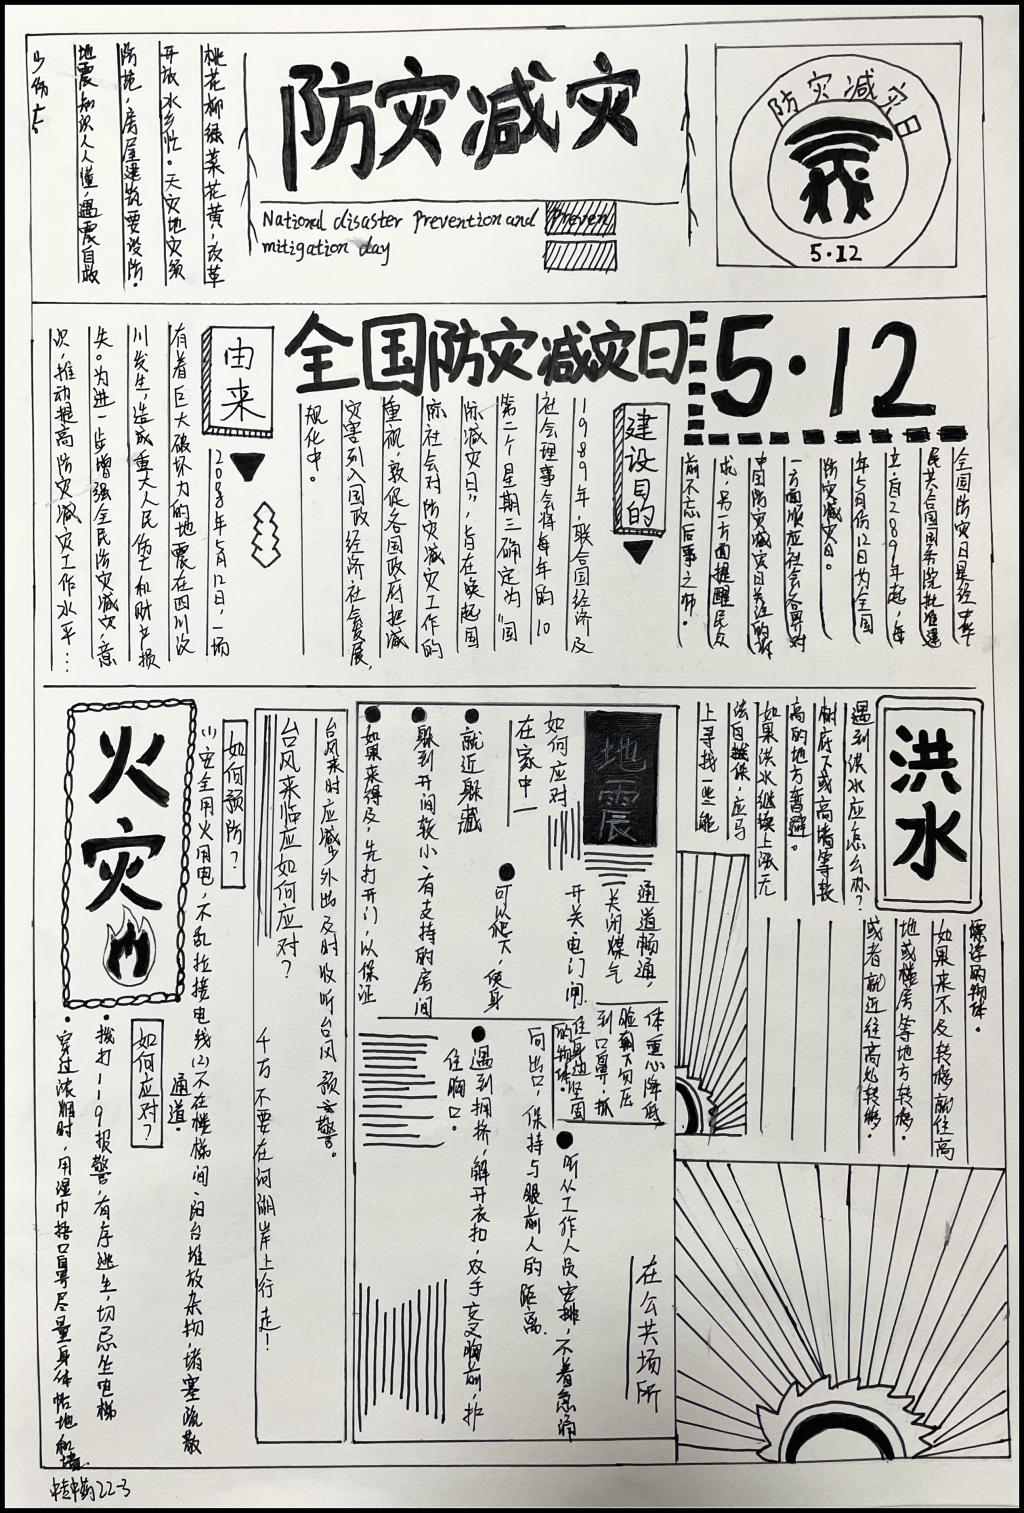 防灾减灾
National disaster Prevention and Preven
mitigation day
防灾减灾日
5·12
桃花柳绿菜花黄，改革
开放水乡忙。天灾地灾须
防范，房屋建筑要设防。
地震知识人人懂，遇震自救
少伤亡
全国防灾减灾日
5·12
全国防灾日是经中华
民共合国国务院批准建
立，自2009年起，每
年5月份12日为全国
防灾减灾日。
一方面顺应社会各界对
中国防灾减灾日关注的诉
求，另一方面提醒民众
前不忘后事之师。
建设目的
1989年，联合国经济及
社会理事会将每年的10
第二个星期三确定为"国
际减灾日"，旨在唤起国
际社会对防灾减灾工作的
重视，敦促各国政府把减
灾害列入国政经济社会发展
规化中。
由来
2008年5月12日，一场
有着巨大破坏力的地震在四川汶
川发生，造成重大人民伤亡和财产损
失。为进一步增强全民防灾减灾意
识，推动提高防灾减灾工作水平…
洪水
遇到洪水应怎么办？
如果来不及转移就往高
地或楼房等地方转移。
或者就近往高处转移。
树底下或高墙等较
高的地方暂避。
如果洪水继续上涨无
法自救保，应马
上寻找一些能
漂浮的物体。
地震
如何应对
在家中一
就近躲藏
躲到开间较小、有支持的房间
如果来得及，先打开门，以保证
通道畅通，
关闭煤气
开关电门闸
可以爬下，使身
体重心降低
脸朝下勿压
到口鼻，抓
住身边坚固
的物体。
在公共场所
听从工作人员安排，不着急涌
向出口，保持与眼前人的距离
遇到拥挤，解开衣扣，双手交叉胸前，护
住胸口。
台风来临应如何应对？
台风来时应减少外出及时收听台风预警。
千万不要在河湖岸上行走！
火灾
如何预防？
(1)安全用火用电，不乱拉接电线(2)不在楼梯间、阳台堆放杂物，堵塞疏散
通道。
如何应对？
拨打119报警，有序逃生，切忌坐电梯
穿过浓烟时，用湿巾捂口鼻尽量身体帖地和墙。
22-3